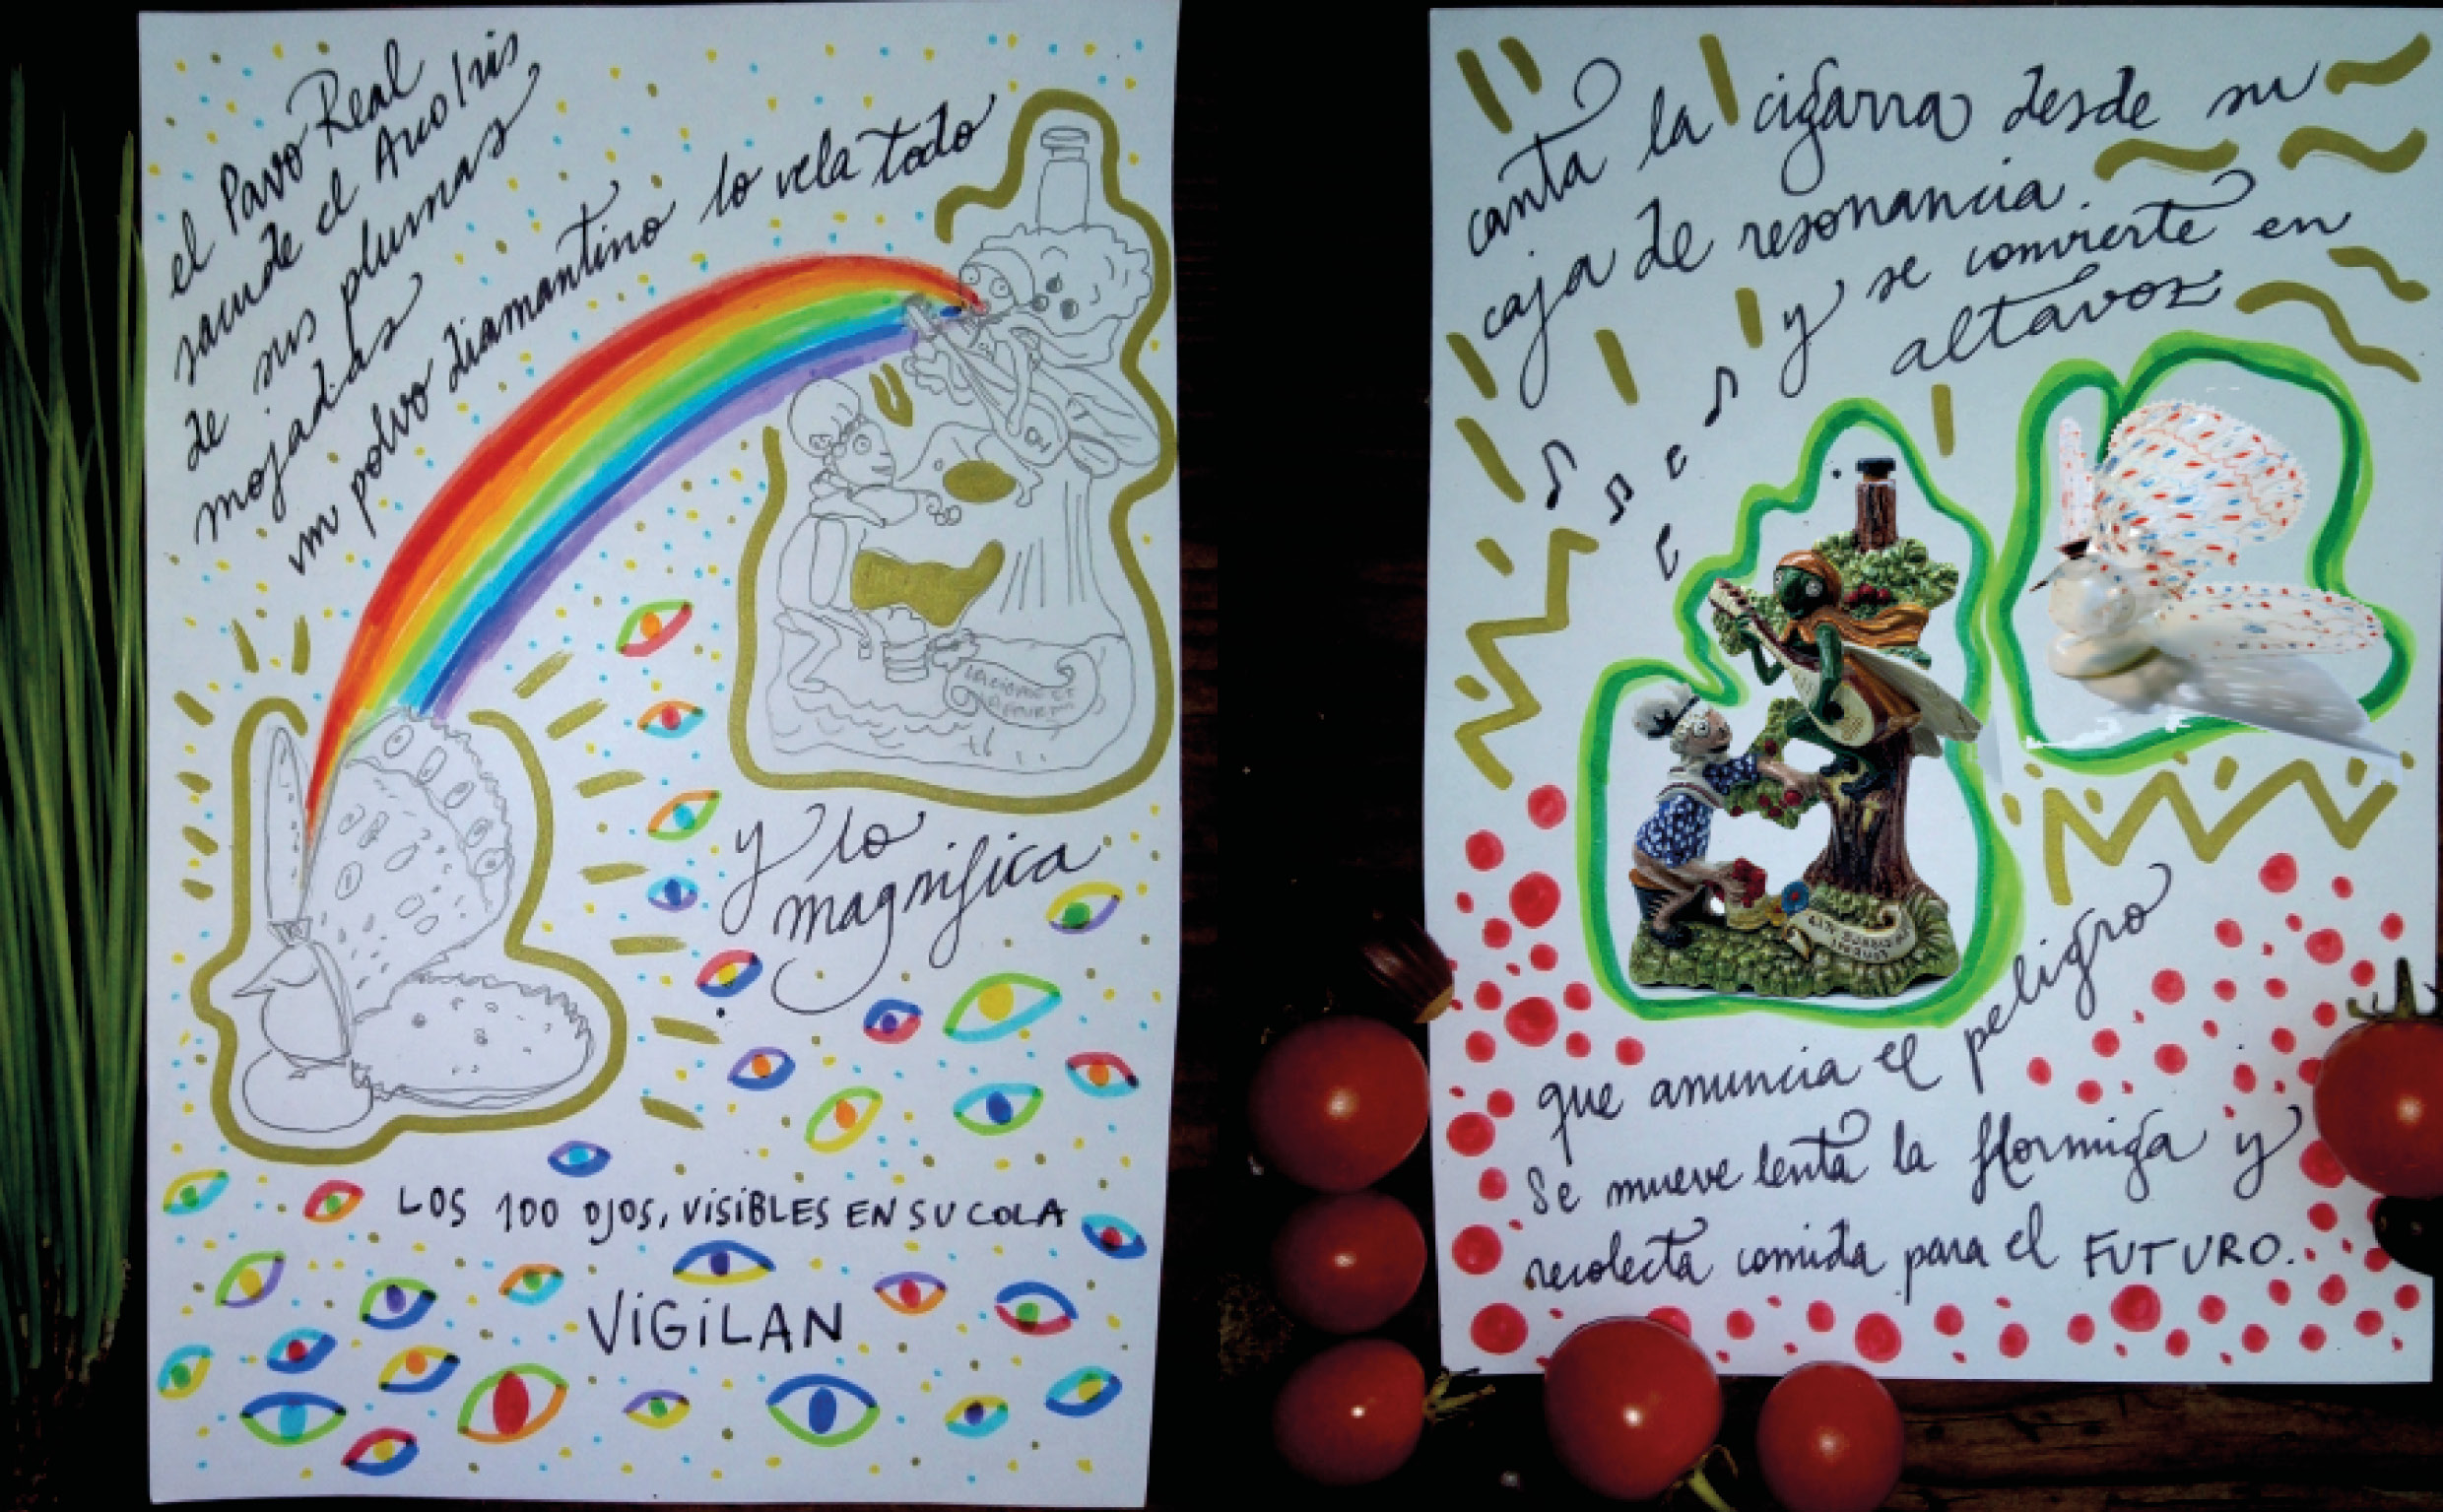 el Pavo Real
sacude el Arco Iris
de sus plumas
mojadas
un polvo diamantino lo vela todo
y lo
magnifica
LOS 100 OJOS, VISIBLES EN SU COLA
VIGILAN
canta la cigarra desde su
caja de resonancia.
y se convierte en
altavoz
que anuncia el peligro
Se mueve lenta la Hormiga y
recolecta comida para el FUTURO.